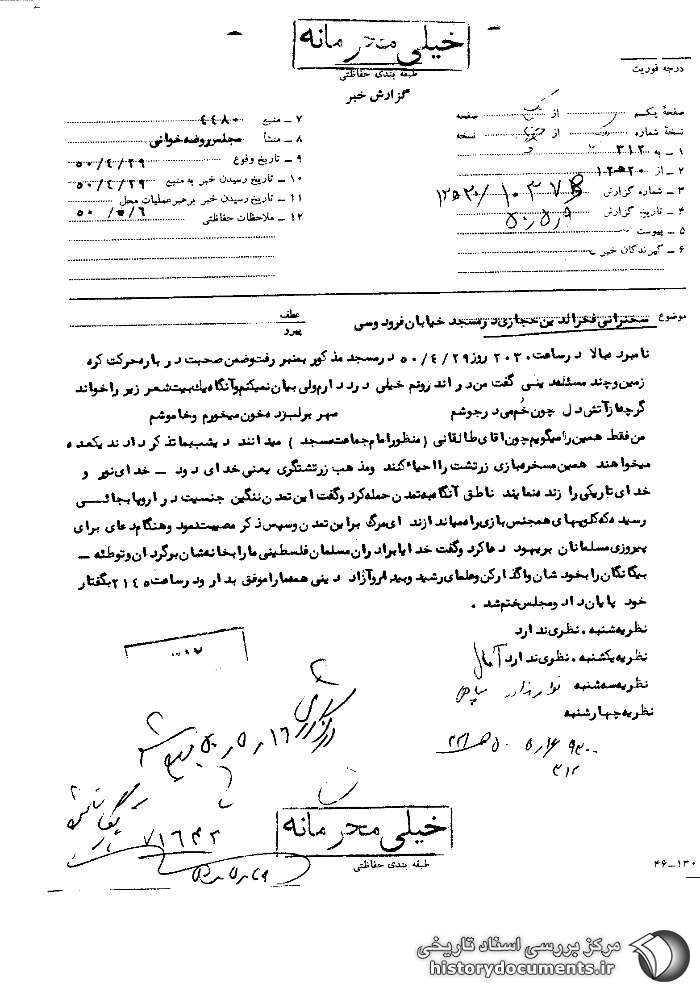 خیلی محرمانه
طبقه بندی حفاظتی
گزارش خبر
درجه فوریت
صفحهٔ یکم از صفحه
نسخهٔ شماره از نسخه
۱ ــ به ۳۱۲
۲ ــ از ۱۲ ه‍ ۲۰
۳ ــ شماره گزارش ۱۰۳۷۵
۴ ــ تاریخ گزارش ۵۰٫۵٫۹
۵ ــ پیوست
۶ ــ گیرندگان خبر
۷ ــ منبع ۴۴۸۰
۸ ــ منشأ مجلس روضه خوانی
۹ ــ تاریخ وقوع ۵۰/۴/۲۹
۱۰ ــ تاریخ رسیدن خبر به منبع ۵۰/۴/۲۹
۱۱ ــ تاریخ رسیدن خبر برهبر عملیات محل ۵۰/۵/۶
۱۲ ــ ملاحظات حفاظتی
موضوع سخنرانی فخرالدین حجازی در مسجد خیابان فردوسی
عطف
پیرو
نامبرده بالا در ساعت ۲۰۳۰ روز ۵۰/۴/۲۹ در مسجد مذکور بمنبر رفت و ضمن صحبت در باره حرکت کره
زمین و چند مسئله دینی گفت من در اندرونم خیلی درد دارم ولی بیان نمیکنم و آنگاه یک بیت شعر زیر را خواند
گرچه از آتش دل چون خُم می در جوشم مهر بر لب زده خون میخورم و خاموشم
من فقط همین را میگویم چون اقای طالقانی (منظور امام جماعت مسجد) میدانند دیشب بما تذکر دادند یکعده
میخواهند همین مسخره بازی زرتشت را احیاء کنند و مذهب زرتشتگری یعنی خدای دود ــ خدای نور و
خدای تاریکی را زنده نمایند ناطق آنگاه به تمدن حمله کرد و گفت این تمدن ننگین جنسیت در اروپا بجائی
رسیده که کلوپهای همجنس بازی راه میاندازند ای مرگ بر این تمدن و سپس ذکر مصیبت نمود و هنگام دعا برای
پیروزی مسلمانان بر یهود دعا کرد و گفت خدایا برادران مسلمان فلسطینی ما را بخانه شان برگردان و توطئه ــ
بیگانگان را بخودشان واگذار کن و علمای رشید و بیدار و آزاد دینی همه ما را موفق بدار و در ساعت ۲۱۴۵ بگفتار
خود پایان داد و مجلس ختم شد .
نظریه شنبه . نظری ندارد
نظریه یکشنبه . نظری ندارد
نظریه سه شنبه
نظریه چهارشنبه
۳۱۲
۷۱۶۴۲
خیلی محرمانه
طبقه بندی حفاظتی
۴۶ــ۱۳۰
مرکز بررسی اسناد تاریخی
historydocuments.ir